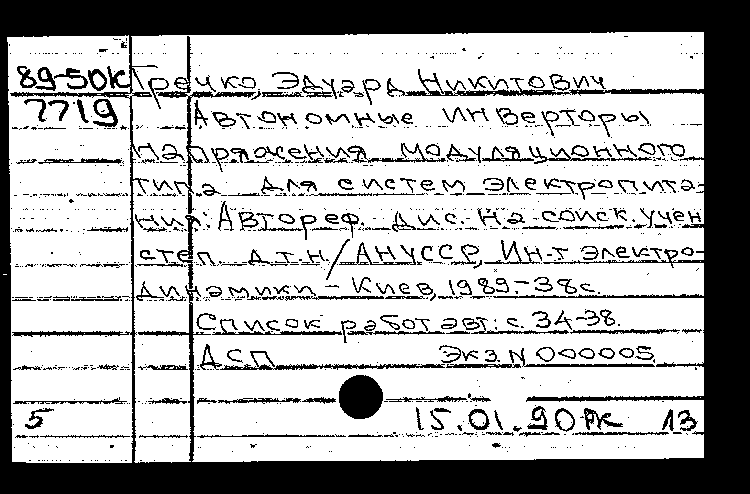 89-50К Гречко, Эдуард Никитович
7719 Автономные инверторы
напряжения модуляционного
типа для систем электропита-
ния: Автореф. дис. на соиск. учен
степ. д.т.н/АН УССР, Ин-т электро-
динамики - Киев, 1989.-38с.
Список работ авт: с. 34-38.
ДСП Экз N 000005
5 15.01.90РК 13